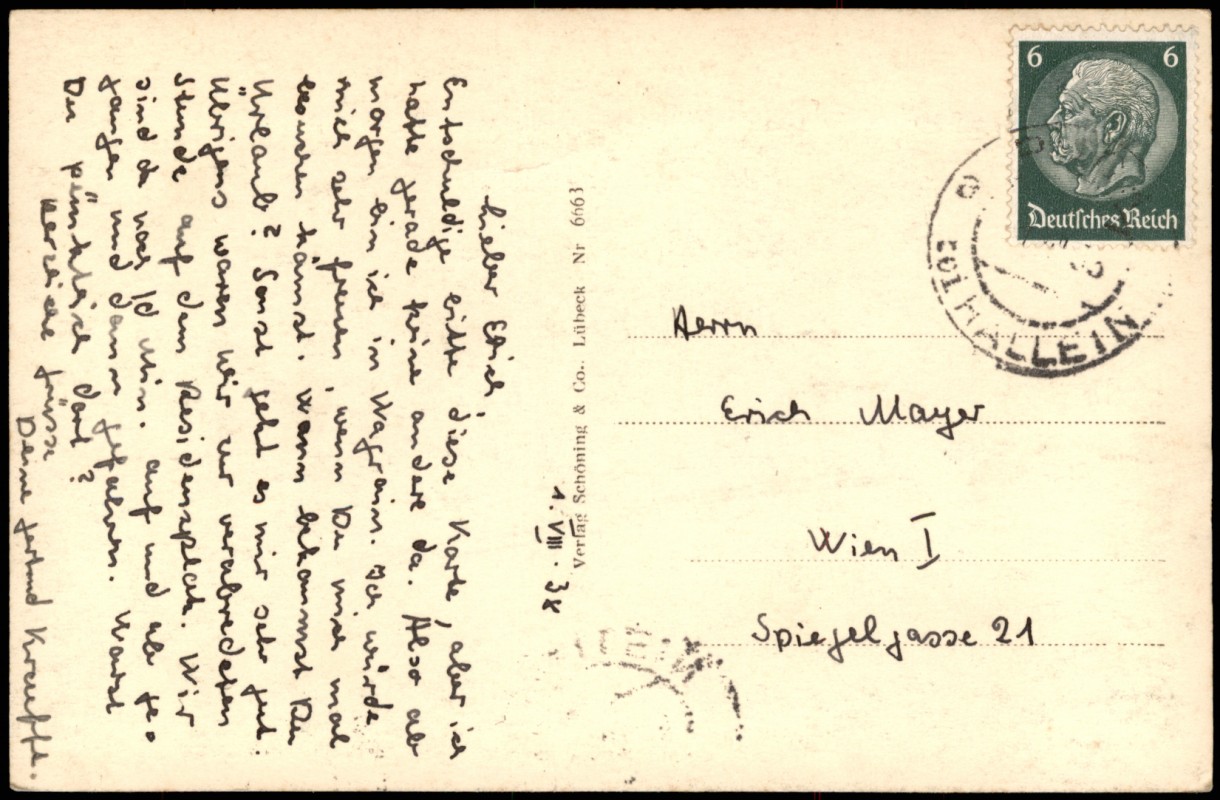 Lieber Erich,
Entschuldige bitte diese Karte, aber ich
hatte gerade keine andere da. Also ab
morgen bin ich in Wagrain. Ich würde
mich sehr freuen, wenn Du mich mal
besuchen kämst. Wann bekommst Du
Urlaub? Sonst geht es mir sehr gut.
Übrigens waren wir zur verabredeten
Stunde auf dem Residenzplatz. Wir
sind da noch 1d Min. auf und ab ge-
gangen und dann gefahren. Warst
Du pünktlich dort?
Herzliche Grüsse
Deine Gertrud
1. VIII. 38
Verlag Schöning & Co., Lübeck Nr 6663
6 6
Deutsches Reich
HALLEIN
Herrn
Erich Mayer
Wien I
Spiegelgasse 21
LLEIN